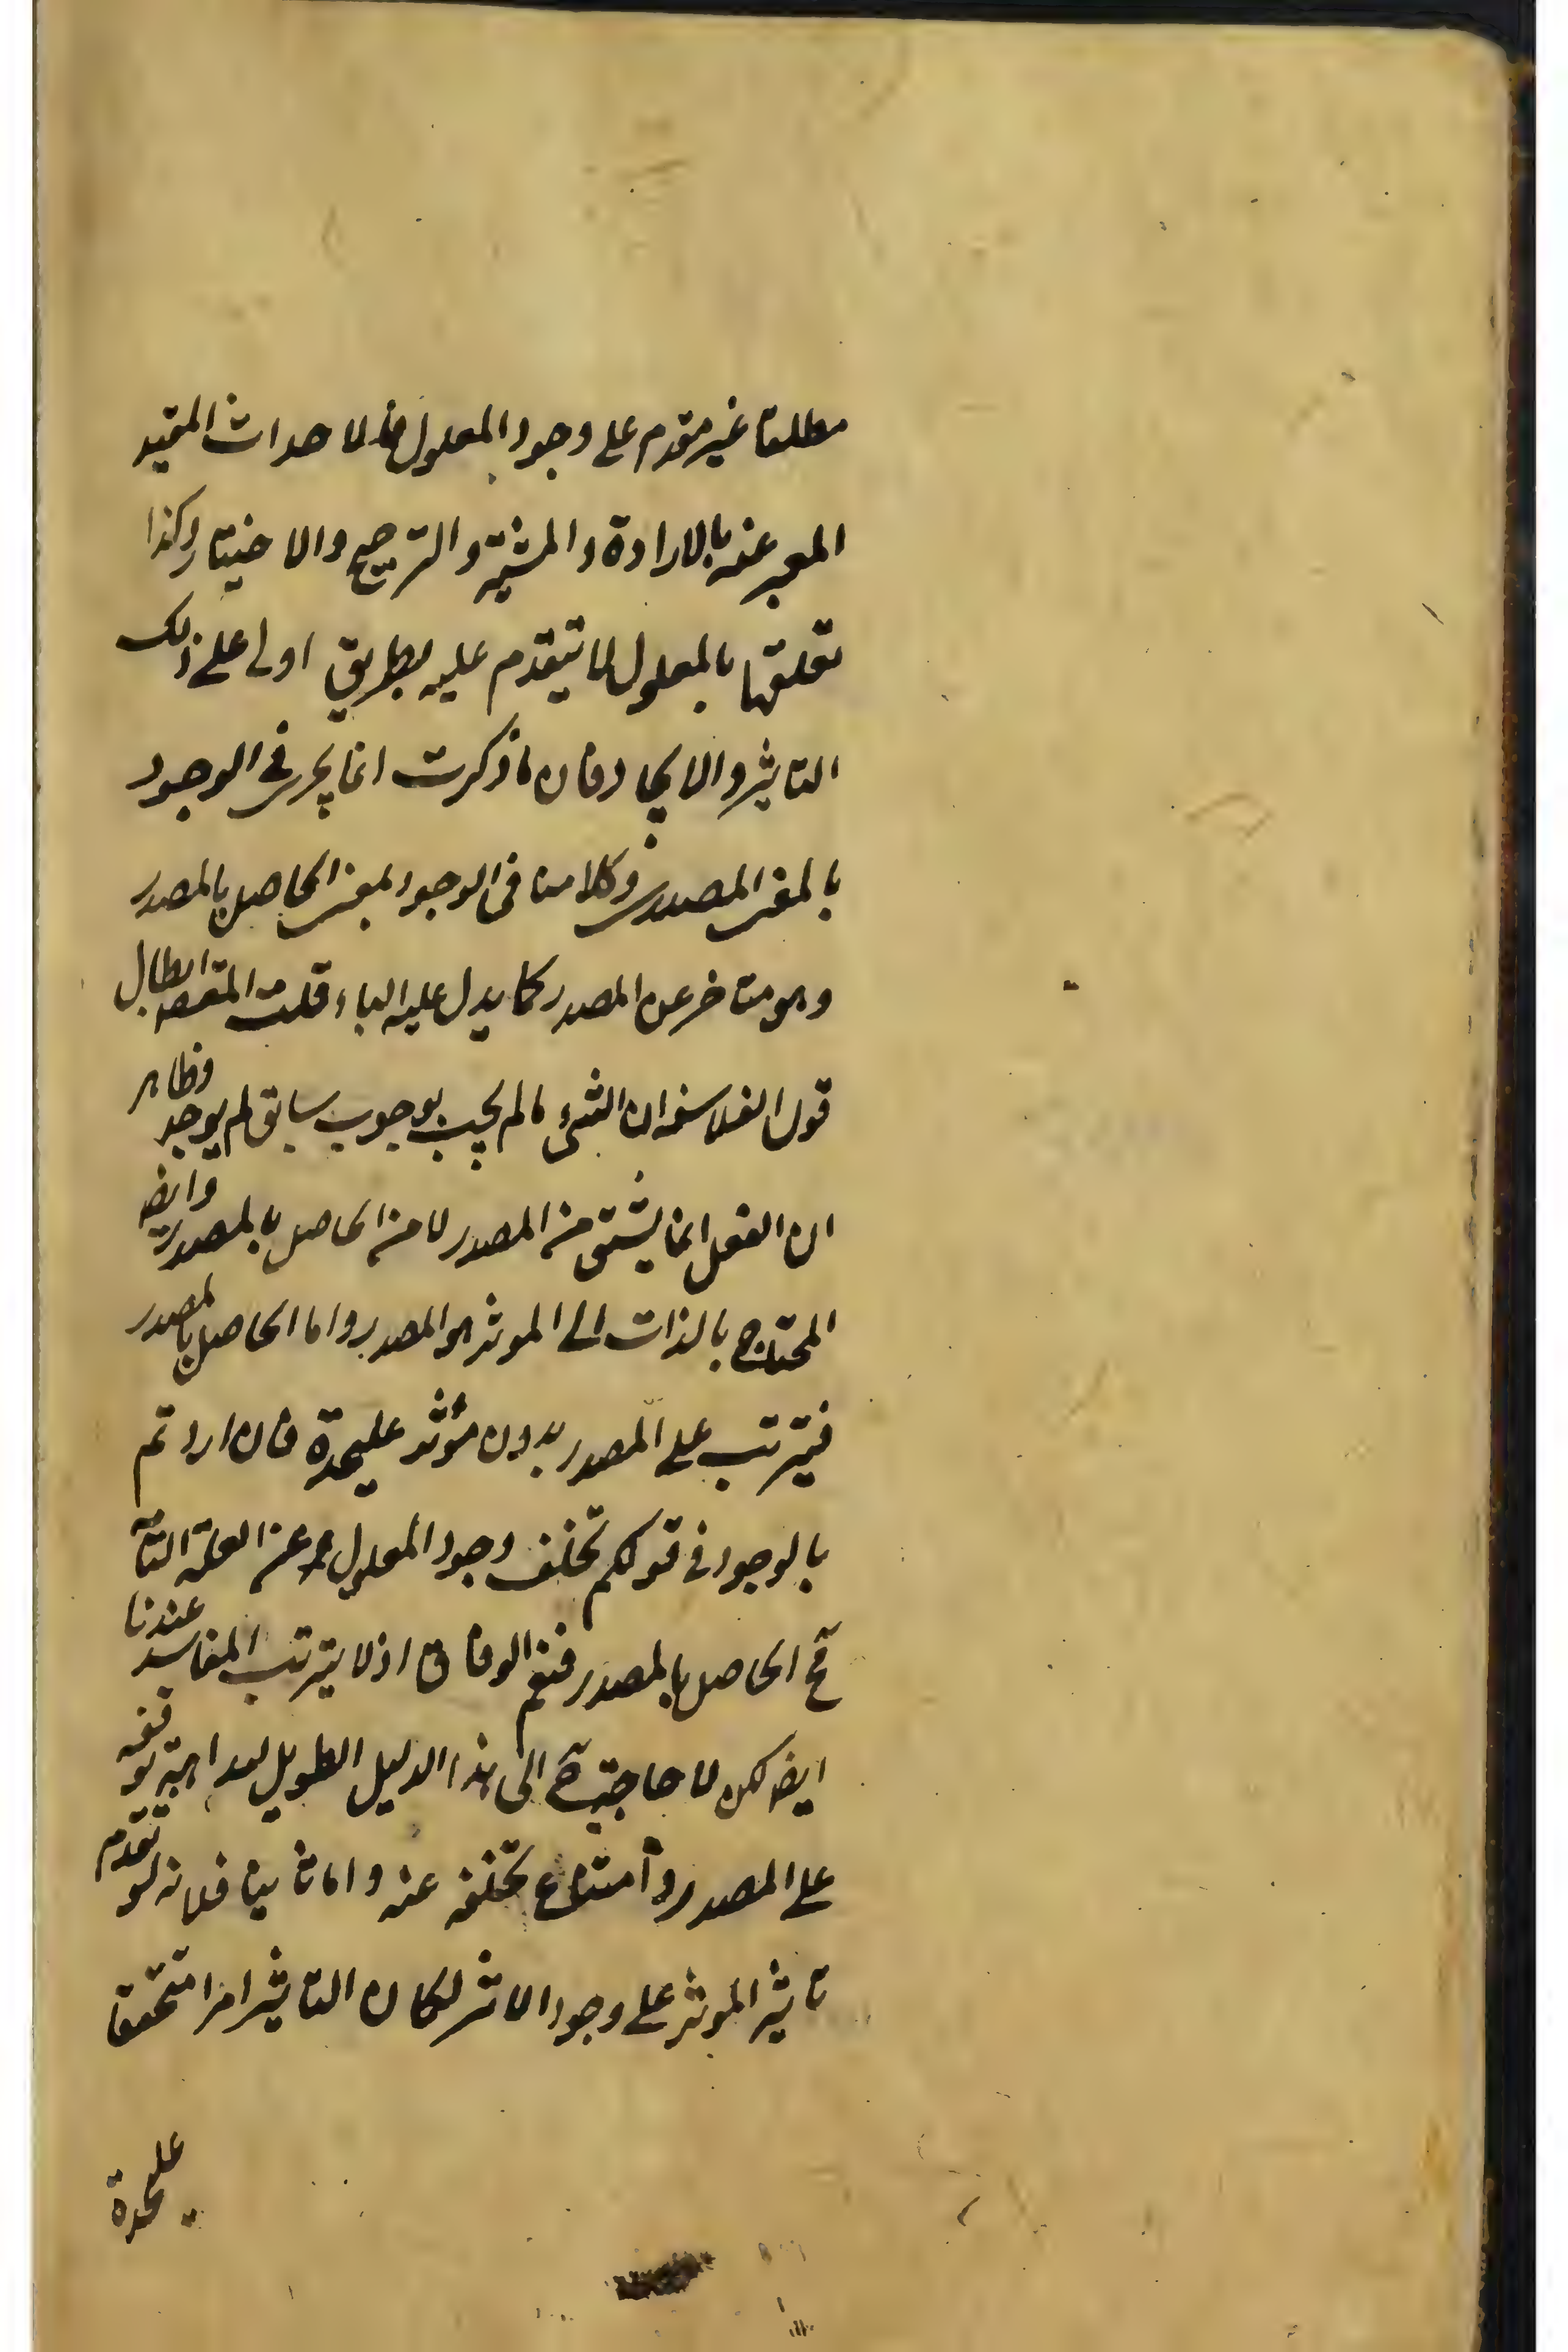 مطلقا غير مقدم على وجود المعلول فالاحداث المقيد
المعبر عنه بالارادة والمشية والترجيح والاختيار وكذا
تعلقها بالمعلول لا تيقدم عليه بطريق اولى على ذلك
التاثير والايجاد فان ما ذكرت انما يجرى فى الوجود
بالمعنى المصدرى وكلامنا فى الوجود بمعنى الحاصل بالمصدر
وهو متاخر عن المصدر كما يدل عليه الباء قلت المقصد ابطال
قول الفلاسفه ان الشئ ما لم يجب بوجوب سابق لم يوجد وظاهر
ان الفعل انما يشتق من المصدر لا من الحاصل بالمصدر وايضا
المحتاج بالذات الى الموثر هو المصدر واما الحاصل بالمصدر
فيترتب على المصدر بدون مؤثر عليحدة فان اردتم
بالوجود فى قولكم تخلف وجود المعلول عن العلة التامة
مح الحاصل بالمصدر فنعم الوفاق اذ لا يترتب المفاسد عندنا
ايضا لكن لا حاجة ح الى هذا الدليل الطويل لبداهة توقفه
على المصدر وامتناع تخلفه عنه واما ثانيا فلانه لو تقدم
تاثير الموثر على وجود الاثر لكان التاثير امرا متحققا
عليحدة